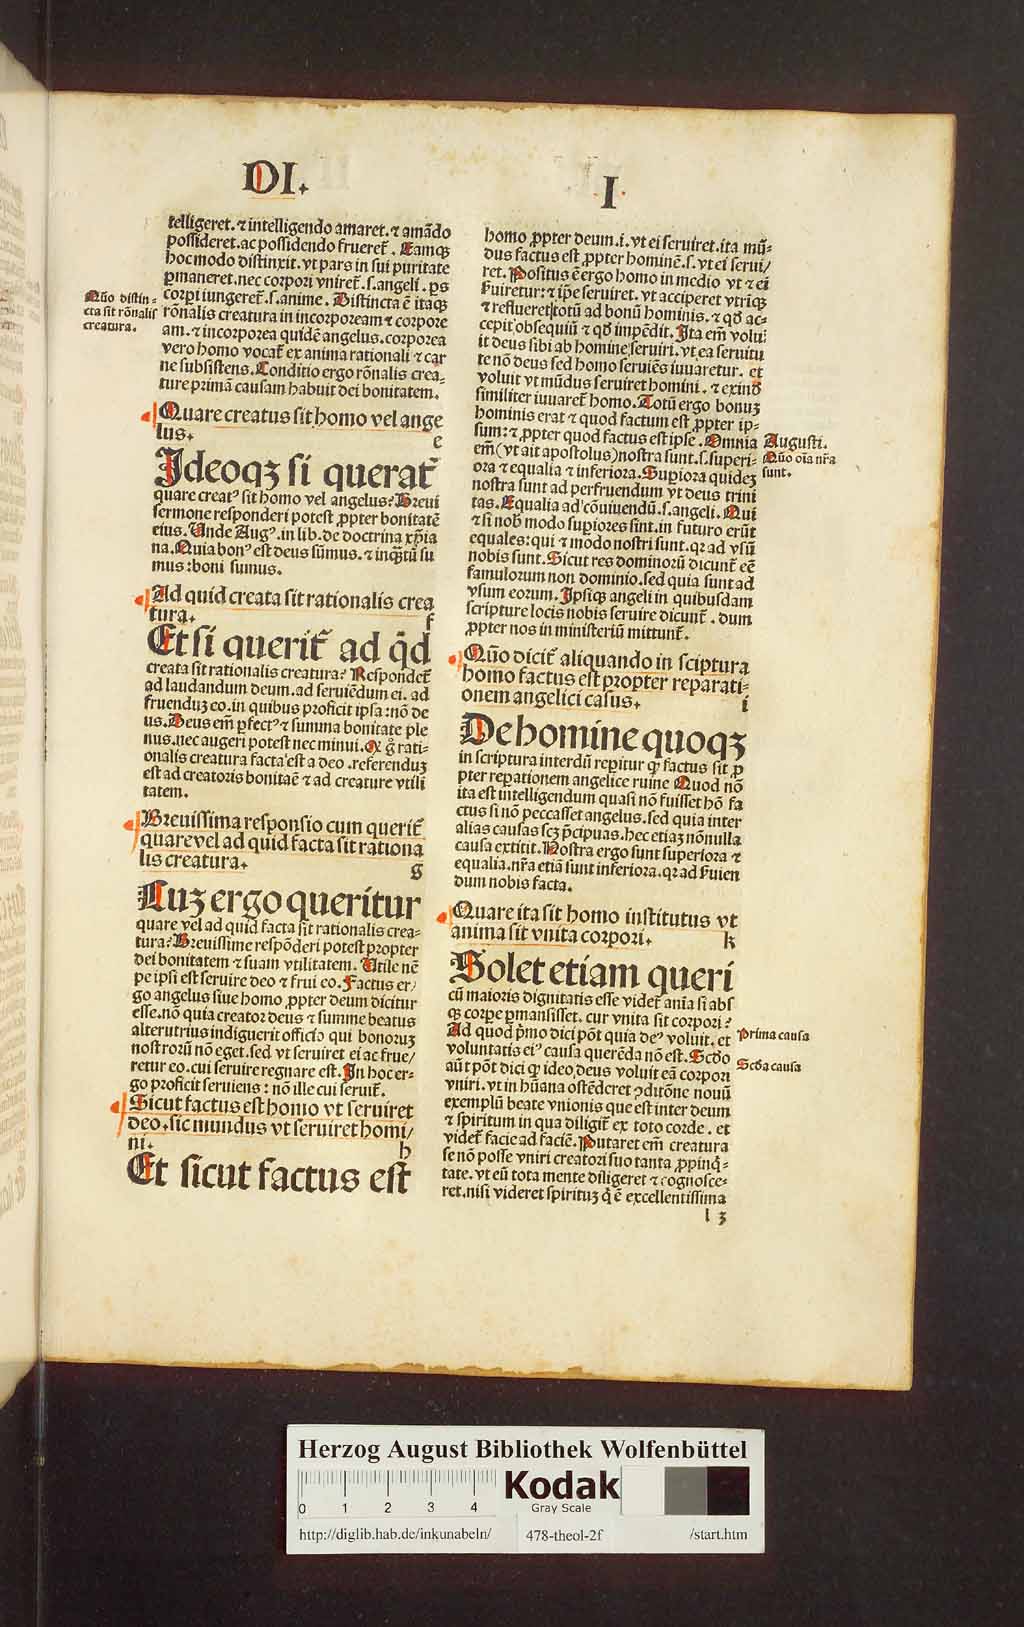 DI.
I
telligeret. ⁊ intelligendo amaret. ⁊ amãdo
possideret. ac possidendo frueret̃. Eamqꝫ
hoc modo distinxit. vt pars in sui puritate
ꝑmaneret. nec corpori vniret̃. s. angeli. ꝑs
corpi iungeret̃. s. anime. Distincta ẽ itaqꝫ
rõnalis creatura in incorpoream ⁊ corpore
am. ⁊ incorporea quidẽ angelus. corporea
vero homo vocat̃ ex anima rationali ⁊ car
ne subsistens. Conditio ergo rõnalis crea-
ture primã causam habuit dei bonitatem.
Quõ distin-
cta sit rõnalis
creatura.
Quare creatus sit homo vel ange
lus.
e
Ideoqꝫ si querat̃
quare creatꝰ sit homo vel angelus? Breui
sermone responderi potest ꝓpter bonitatẽ
eius. Unde Augꝰ. in lib. de doctrina xp̃ia
na. Quia bonꝰ est deus sũmus. ⁊ inqᷓtũ su
mus: boni sumus.
Ad quid creata sit rationalis crea
tura.
f
Et si querit̃ ad q̃d
creata sit rationalis creatura? Respondet̃
ad laudandum deum. ad seruiẽdum ei. ad
fruenduꝫ eo. in quibus proficit ipsa: nõ de
us. Deus em̃ ꝑfectꝰ ⁊ summa bonitate ple
nus. nec augeri potest nec minui. Qꝫ g̊ rati-
onalis creatura facta est a deo. referenduꝫ
est ad creatoris bonitatẽ ⁊ ad creature vtili
tatem.
Breuissima responsio cum querit̃
quare vel ad quid facta sit rationa
lis creatura.
g
Cuꝫ ergo queritur
quare vel ad quid facta sit rationalis crea-
tura? Breuissime respõderi potest propter
dei bonitatem ⁊ suam vtilitatem. Utile nẽ
pe ipsi est seruire deo ⁊ frui eo. Factus er/
go angelus siue homo ꝓpter deum dicitur
esse. nõ quia creator deus ⁊ summe beatus
alterutrius indiguerit officio qui bonoruꝫ
nostrorũ nõ eget. sed vt seruiret ei ac frue/
retur eo. cui seruire regnare est. In hoc er-
go proficit seruiens: nõ ille cui seruit̃.
Sicut factus est homo vt seruiret
deo. sic mundus vt seruiret homi/
ni.
h
Et sicut factus est
homo ꝓpter deum. i. vt ei seruiret. ita mũ-
dus factus est ꝓpter hominẽ. s. vt ei serui/
ret. Positus ẽ ergo homo in medio vt ⁊ ei
fruiretur: ⁊ ip̃e seruiret. vt acciperet vtriqꝫ
⁊ reflueret totũ ad bonũ hominis. ⁊ qď ac-
cepit obsequiũ ⁊ qď impẽdit. Ita em̃ volu
it deus sibi ab homine seruiri. vt ea seruitu
te nõ deus sed homo seruiẽs iuuaretur. et
voluit vt mũdus seruiret homini. ⁊ exinď
similiter iuuaret̃ homo. Totũ ergo bonuꝫ
hominis erat ⁊ quod factum est ꝓpter ip-
sum: ⁊ ꝓpter quod factus est ipse. Omnia
em̃ (vt ait apostolus) nostra sunt. s. superi-
ora ⁊ equalia ⁊ inferiora. Supiora quidez
nostra sunt ad perfruendum vt deus trini
tas. Equalia ad cõuiuendũ. s. angeli. Qui
⁊ si nob̃ modo supiores sint. in futuro erũt
equales: qui ⁊ modo nostri sunt. qꝛ ad vsũ
nobis sunt. Sicut res dominorũ dicunt̃ eẽ
famulorum non dominio. sed quia sunt ad
vsum eorum. Ipsiqꝫ angeli in quibusdam
scripture locis nobis seruire dicunt̃. dum
ꝓpter nos in ministeriũ mittunt̃.
Augusti.
Quõ oĩa nr̃a
sunt.
Quõ dicit̃ aliquando in sciptura
homo factus est propter reparati-
onem angelici casus.
i
De homine quoqꝫ
in scriptura interdũ reꝑitur ꝙ factus sit ꝓ
pter reꝑationem angelice ruine Quod nõ
ita est intelligendum quasi nõ fuisset hõ fa
ctus si nõ peccasset angelus. sed quia inter
alias causas scꝫ p̃cipuas. hec etiaꝫ nõnulla
causa extitit. Nostra ergo sunt superiora ⁊
equalia. nr̃a etiã sunt inferiora. qꝛ ad fruien
dum nobis facta.
Quare ita sit homo institutus vt
anima sit vnita corpori.
k
Solet etiam queri
cũ maioris dignitatis esse videt̃ anĩa si abs
qꝫ corpe ꝑmansisset. cur vnita sit corpori?
Ad quod p̃mo dici põt quia deꝰ voluit. et
voluntatis eiꝰ causa querẽda nõ est. Scďo
aũt põt dici ꝙ ideo deus voluit eã corpori
vniri. vt in hũana ostẽderet ꝯditõne nouũ
exemplũ beate vnionis que est inter deum
⁊ spiritum in qua diligit̃ ex toto corde. et
videt̃ facie ad faciẽ. Putaret em̃ creatura
se nõ posse vniri creatori suo tanta ꝓpinq̃-
tate. vt eũ tota mente diligeret ⁊ cognosce-
ret. nisi videret spirituꝫ q̃ ẽ excellentissima
Prima causa
Scďa causa
l 3
Herzog August Bibliothek Wolfenbüttel
0 1 2 3 4
Kodak
Gray Scale
http://diglib.hab.de/inkunabeln/ 478-theol-2f /start.htm